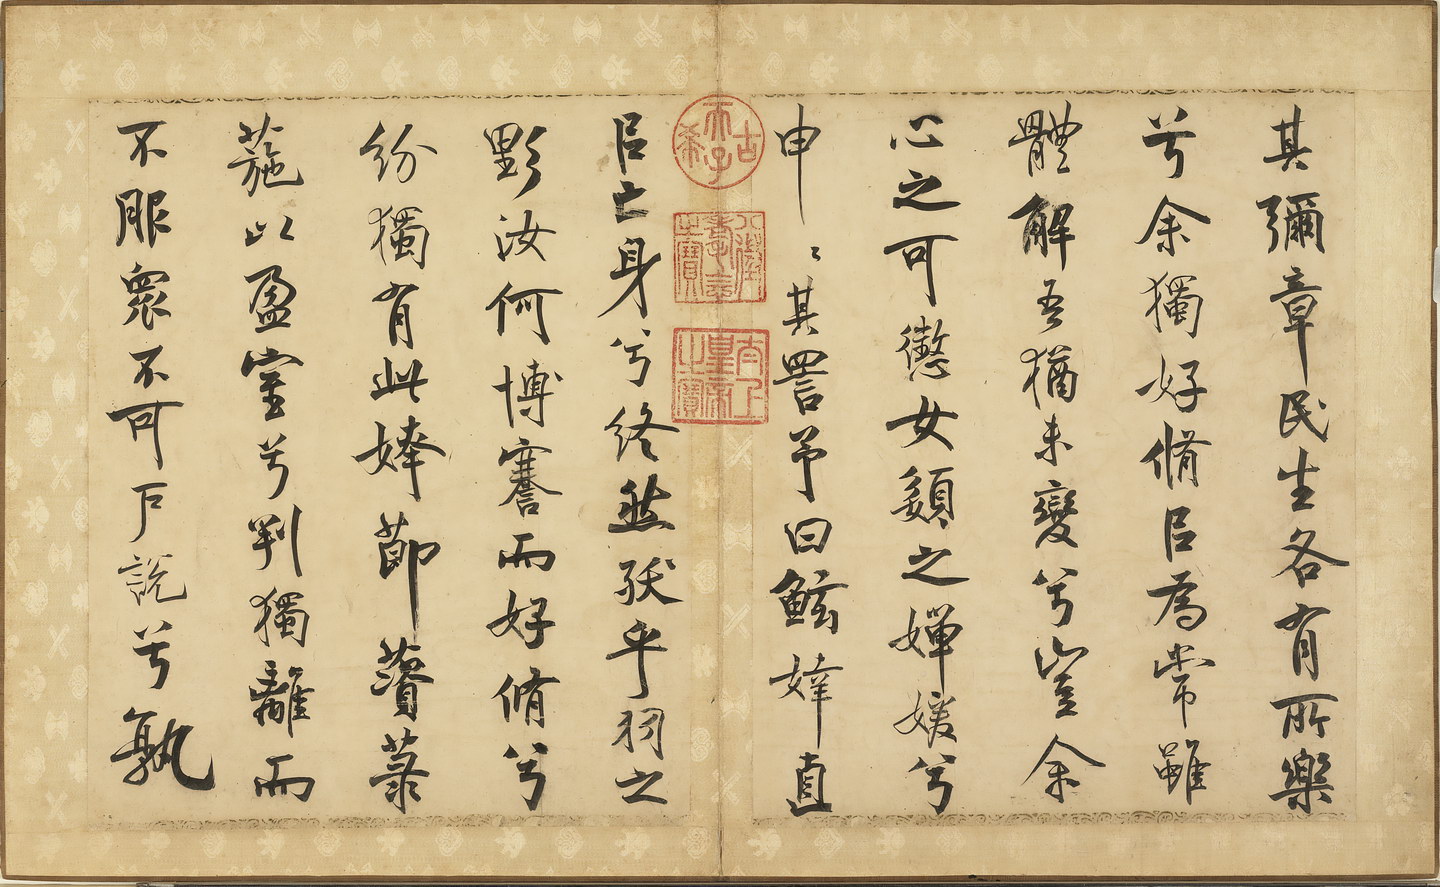 其彌章民生各有所樂
兮余獨好脩㠯為常雖
體解吾猶未變兮豈余
心之可懲女嬃之嬋媛兮
申〻其詈予曰鮌婞直
㠯亡身兮終然殀乎羽之
野汝何博謇而好脩兮
紛獨有此姱節薋菉
葹以盈室兮判獨離而
不服衆不可戶說兮孰
古希天子
八徵耄念之寶
太上皇帝之寶